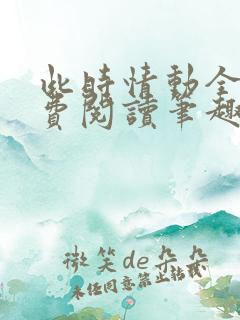 此时情動全
費閱讀筆趣
微笑de朵朵
未经同意禁止转载